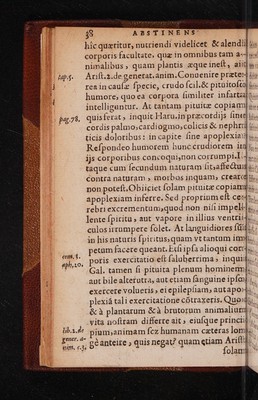 38 ABSTINENS
hic quæritur, nutriendi videlicet & alendi
corporis facultate, quæ in omnibus tam a-
nimalibus, quam plantis æque inest, ait
cap. 5. Arist. 2. de generat. anim. Conuenire præte-
rea in causæ specie, crudo scil. & pituitoso
humore, quo ea corpora similiter infarta
intelliguntur. At tantam pituitæ copiam
pag. 78. quis ferat, inquit Haru. in præcordijs sine
cordis palmo, cardiogmo, colicis & nephri-
ticis doloribus: in capite sine apoplexia?
Respondeo humorem hunc crudiorem in
ijs corporibus concoqui, non corrumpi. I-
taque cum secundum naturam sit, affectus
contra naturam, morbos inquam, creare
non potest. Obiiciet solam pituitæ copiam
apoplexiam inferre. Sed proprium est ce-
rebri excrementum, quod non nisi impel-
lente spiritu, aut vapore in illius ventri-
culos irrumpere solet. At languidiores sunt
in his naturis spiritus, quam vt tantum im-
petum facere queant. Etsi ipsa alioqui cor-
poris exercitatio est saluberrima, inquit
aph. 20. Gal. tamen si pituita plenum hominem
aut bile alterutra, aut etiam sanguine ipso
exercere volueris, ei epilepsiam, aut apo-
plexiā tali exercitatione cōtraxeris. Quod
& à plantarum & à brutorum animalium
vita nostram differre ait, eiusque princi-
lib. 2. de pium, animam scz humanam cæteras lon-
gè anteire, quis negat? quam etiam Arist.
solam